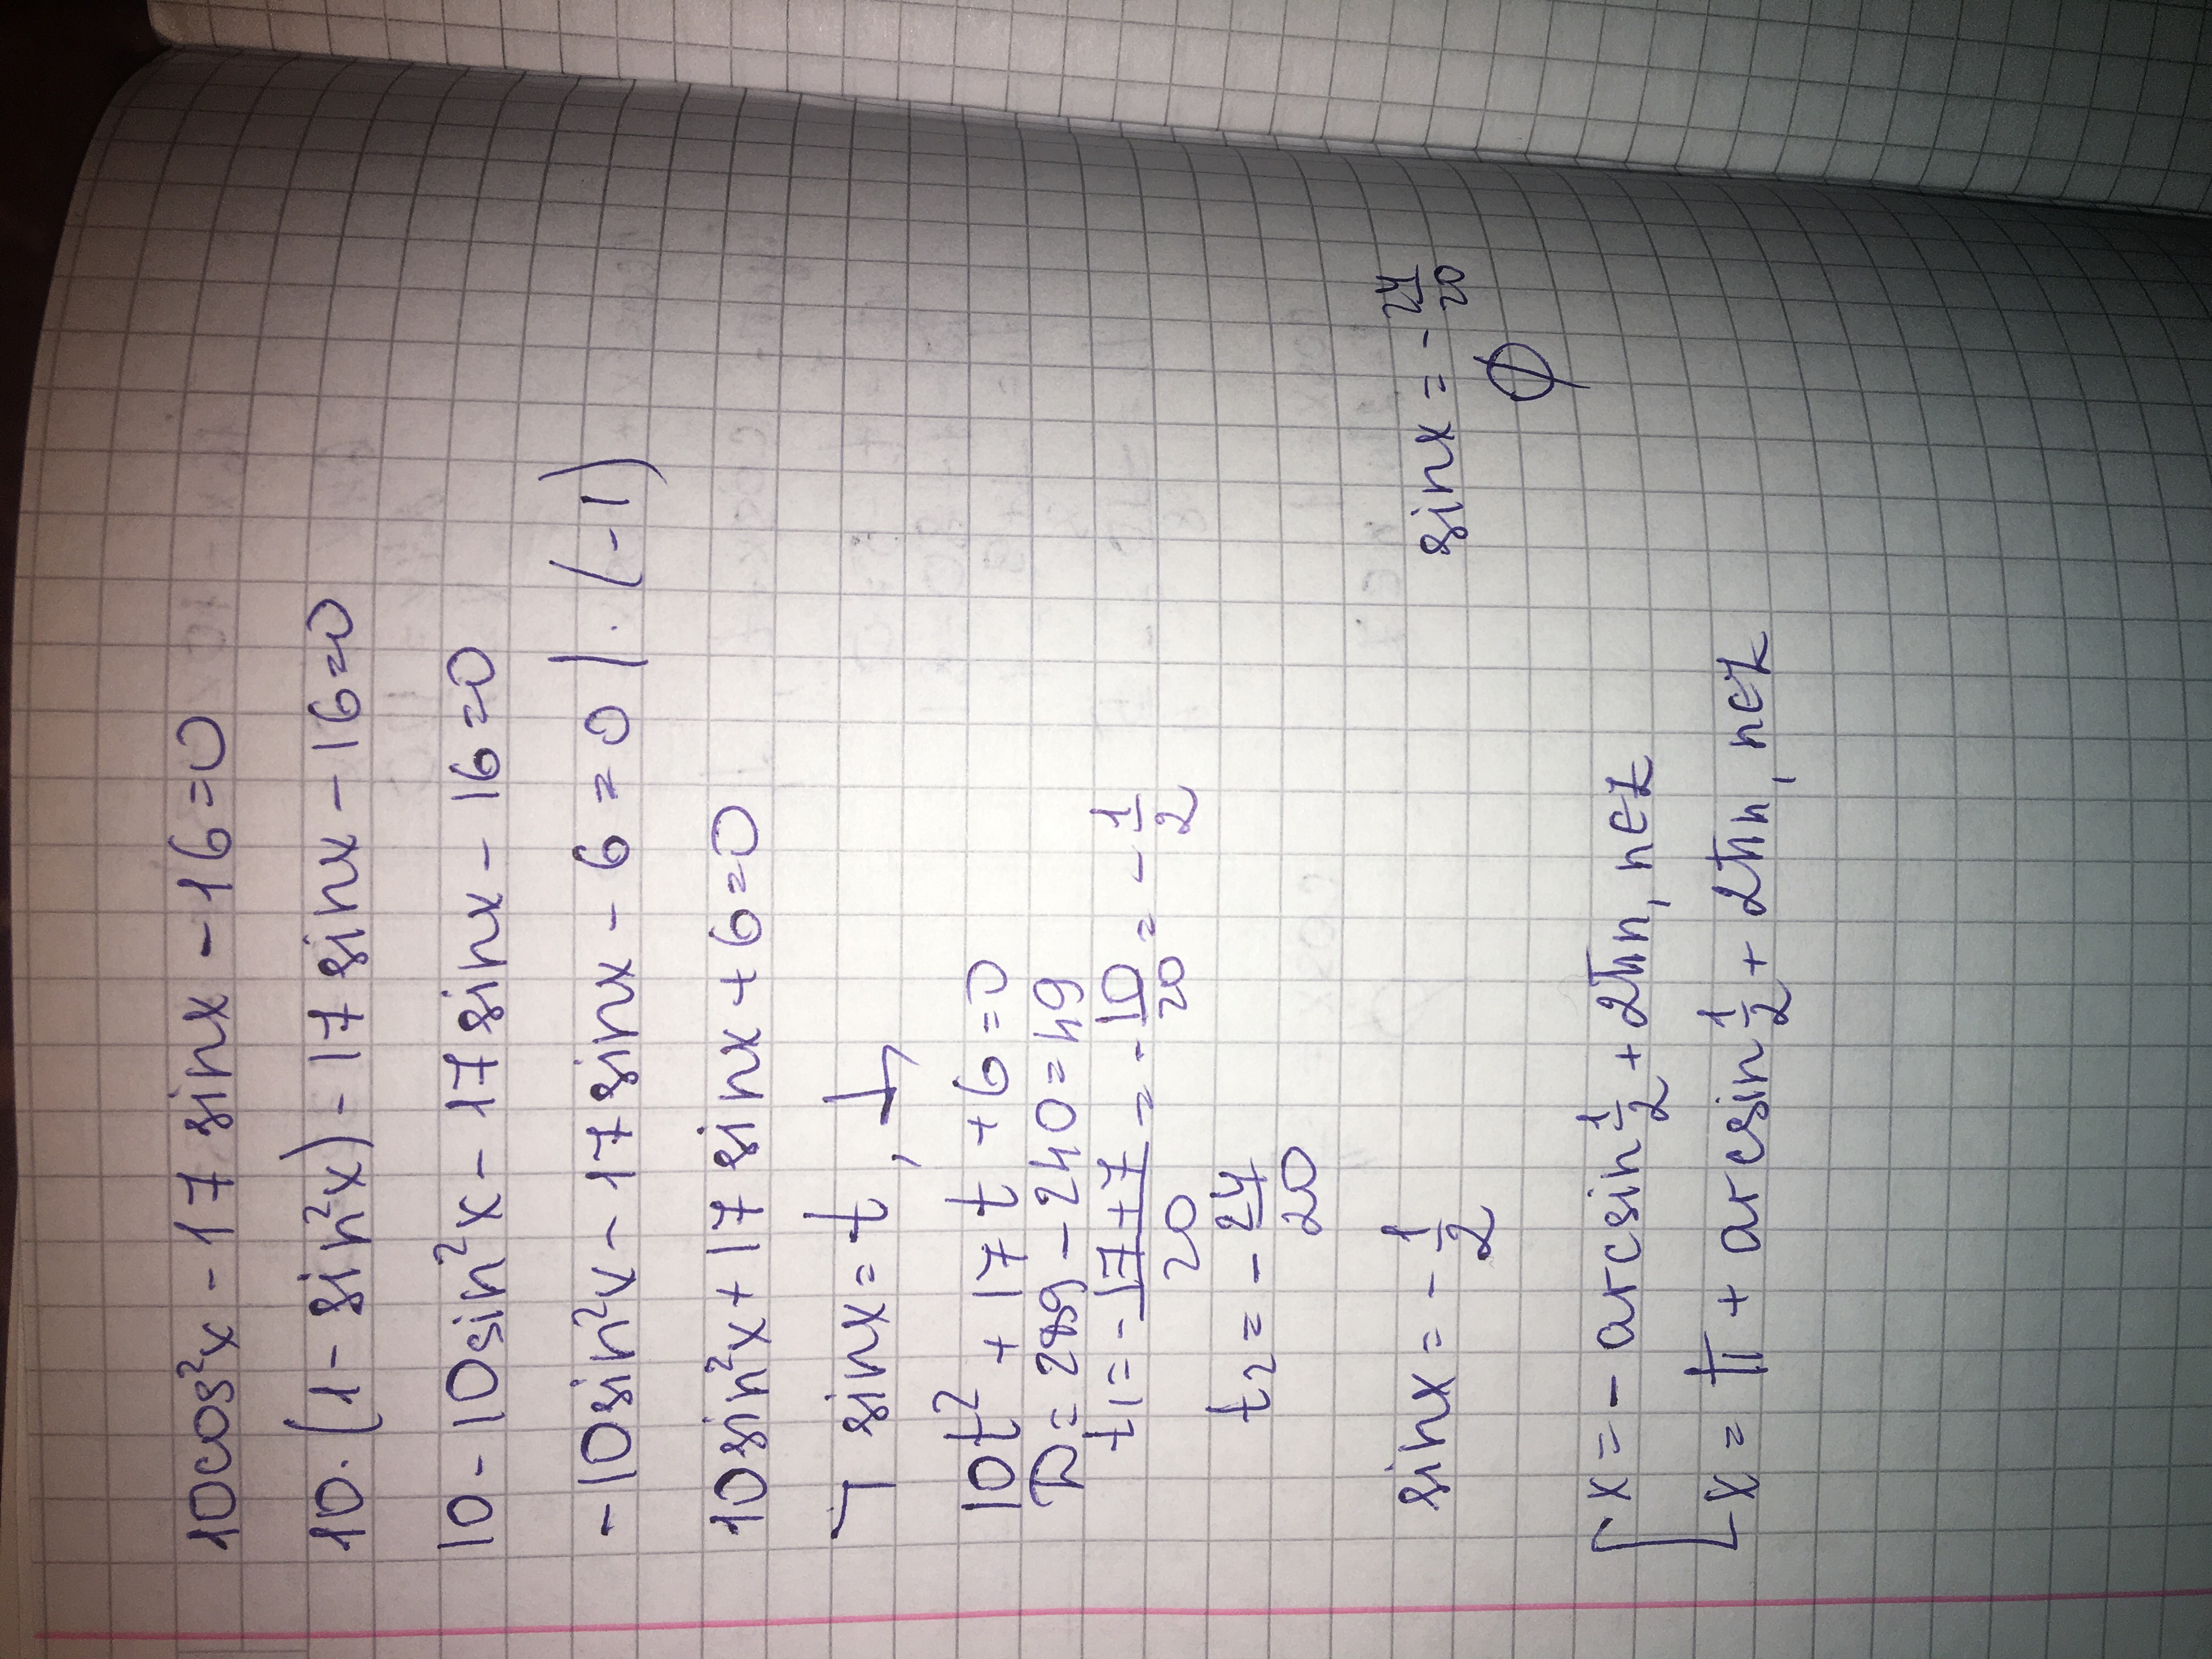 10cos²x - 17 sinx - 16 = 0
10·(1 - sin²x) - 17 sinx - 16 = 0
10 - 10sin²x - 17 sinx - 16 = 0
-10sin²x - 17 sinx - 6 = 0 | · (-1)
10sin²x + 17 sinx + 6 = 0
sinx = t,
10t² + 17t + 6 = 0
D = 289 - 240 = 49
t₁ = -17+7/20 = -10/20 = -1/2
t₂ = -24/20
sinx = -1/2 sinx = -24/20
∅
[x = -arcsin 1/2 + 2πn, n∈Z
x = π + arcsin 1/2 + 2πn, n∈Z